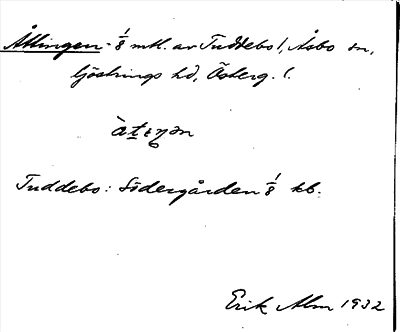 Åttingen - 1/8 mtl. av Tuddebo 1, Åsbo sn,
Göstrings hd, Österg. l.
Tuddebo: Södergården 1/8 kb.
Erik Alm 1932